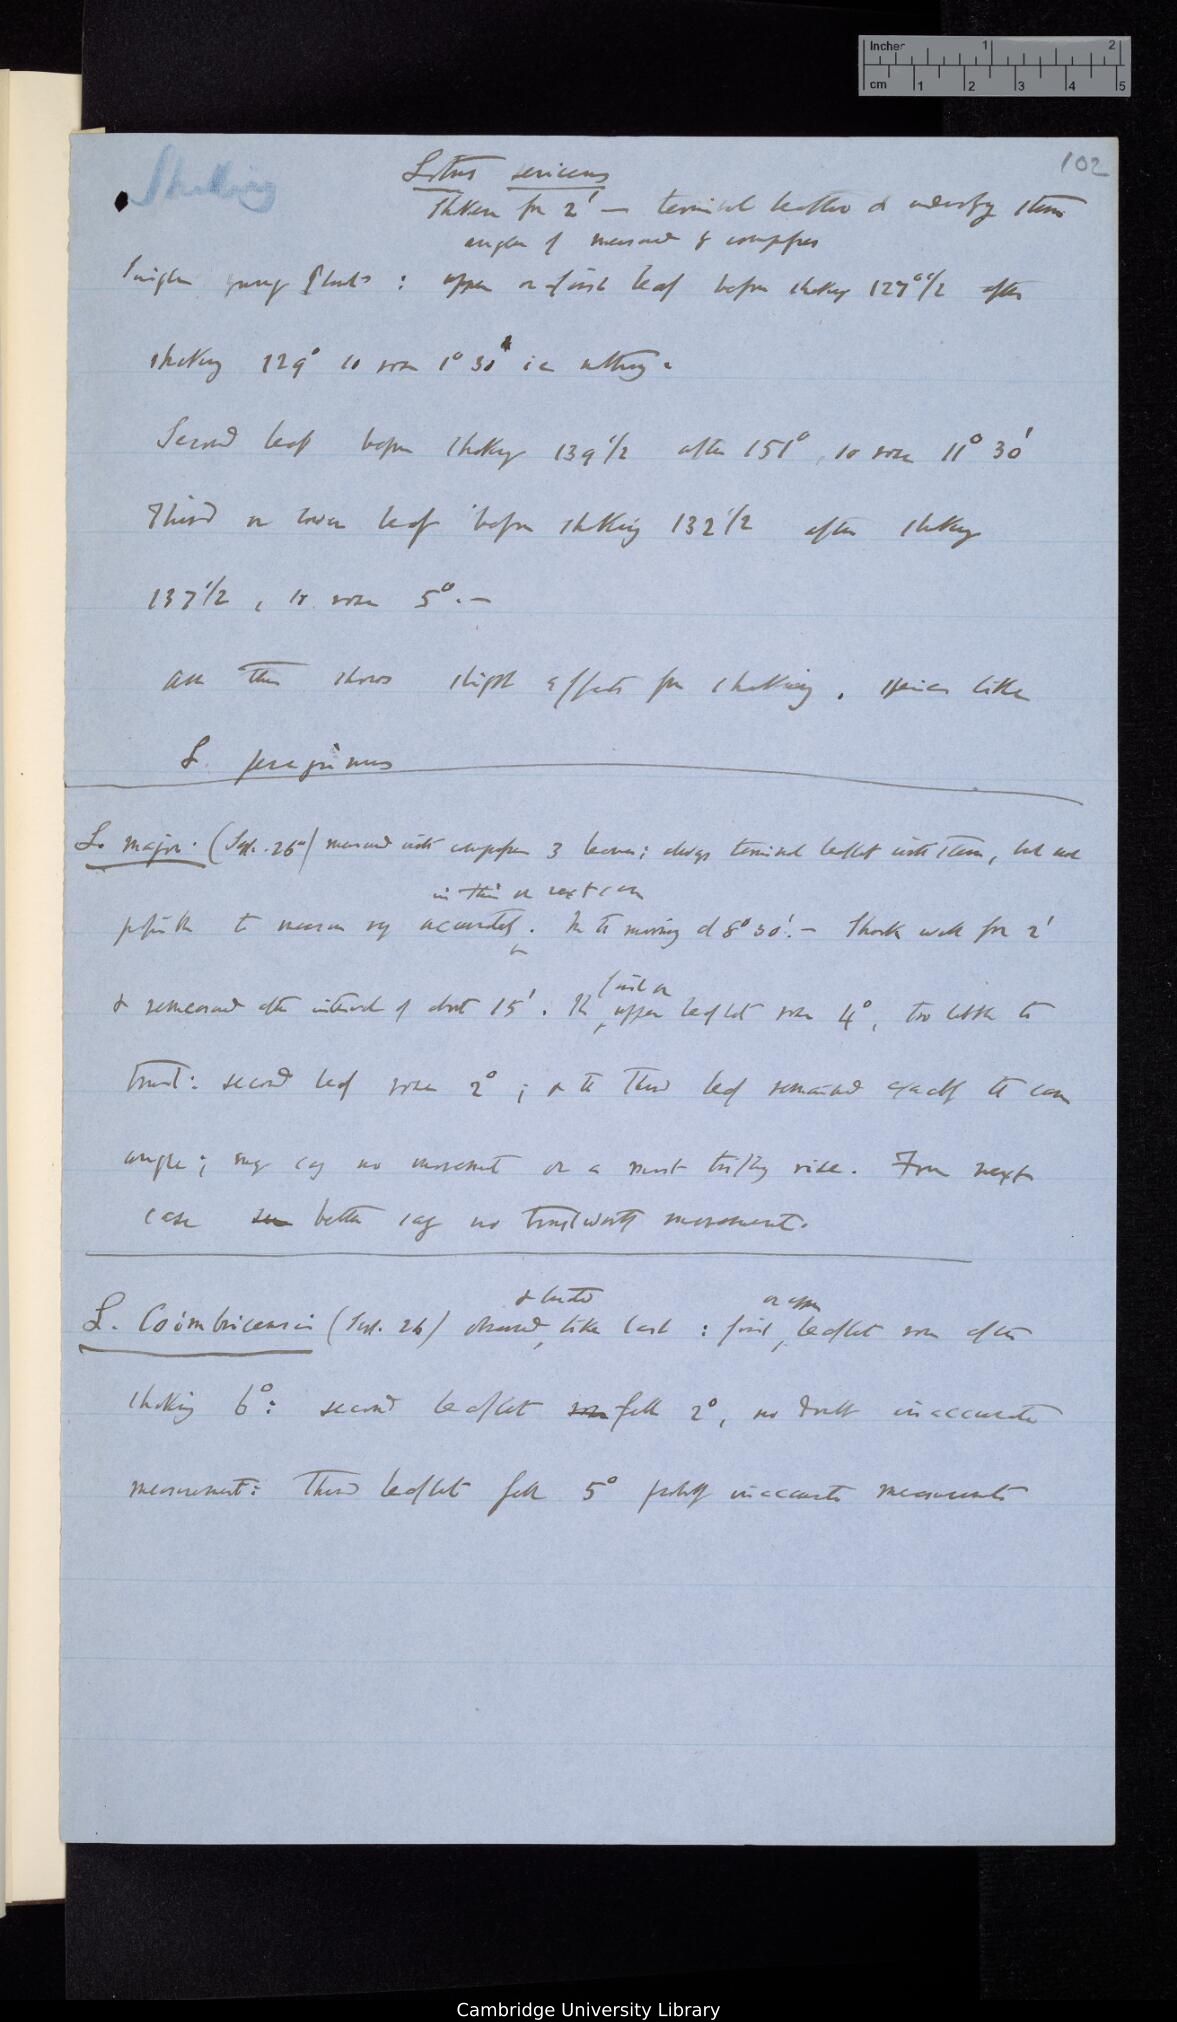 Inches 1 2
cm 1 2 3 4 5
102
Shaking
Lotus sericeus
Shaken for 2' — terminal leaflet & underlying stem
angles measured by compasses
Single young Plants : upper or first leaf before shaking 127°1/2 after
shaking 129° so rose 1° 30' ie nothing.
Second leaf before shaking 139 1/2 after 151°, so rose 11° 30'
Third or lower leaf before shaking 132 1/2 after shaking
137 1/2, so rose 5°.—
all this shows slight effects from shaking, species like
L. peregrinus
L. major. (Sept. 26th) measured with compasses 3 leaves; always terminal leaflet with stem, but not
in this or next case
possible to measure very accurately. In the morning at 8° 30'.— Shook well for 2'
first or
& remeasured after interval of about 15'. The upper leaflet rose 4°, too little to
trust: second leaf rose 2°; & the third leaf remained exactly the same
angle; may say no movement or a most trifling rise. From next
case better say no trustworthy movement.
& tested
or upper
L. Coimbricensis (Sept. 26) observed, like last : first, leaflet rose after
shaking 6°: second leaflet rose fell 2°, no doubt inaccurate
measurement: Third leaflet fell 5° probably inaccurate measurements
Cambridge University Library